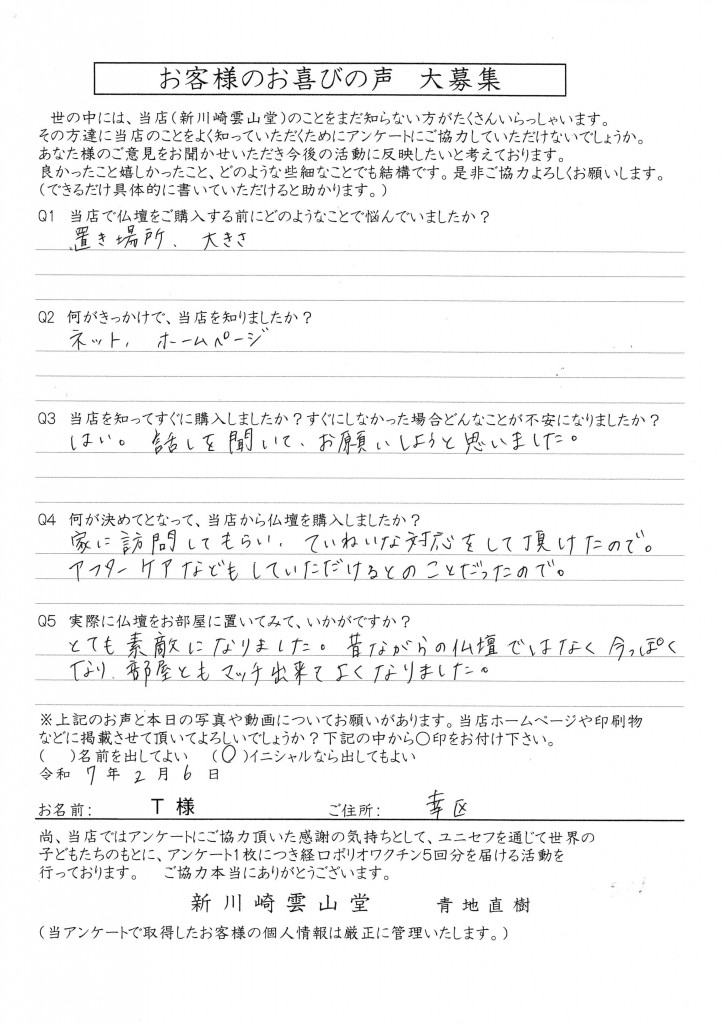 お客様のお喜びの声　大募集
世の中には、当店(新川崎雲山堂)のことをまだ知らない方がたくさんいらっしゃいます。
その方達に当店のことをよく知っていただくためにアンケートにご協力していただけないでしょうか。
あなた様のご意見をお聞かせいただき今後の活動に反映したいと考えております。
良かったこと嬉しかったこと、どのような些細なことでも結構です。是非ご協力よろしくお願いします。
(できるだけ具体的に書いていただけると助かります。)
Q1　当店で仏壇をご購入する前にどのようなことで悩んでいましたか？
置き場所、大きさ
Q2　何がきっかけで、当店を知りましたか？
ネット、ホームページ
Q3　当店を知ってすぐに購入しましたか？すぐにしなかった場合どんなことが不安になりましたか？
はい。話しを聞いて、お願いしようと思いました。
Q4　何が決めてとなって、当店から仏壇を購入しましたか？
家に訪問してもらい、ていねいな対応をして頂けたので。
アフターケアなどもしていただけるとのことだったので。
Q5　実際に仏壇をお部屋に置いてみて、いかがですか？
とても素敵になりました。昔ながらの仏壇ではなく今っぽく
なり、部屋ともマッチ出来てよくなりました。
※上記のお声と本日の写真や動画についてお願いがあります。当店ホームページや印刷物
などに掲載させて頂いてよろしいでしょうか？下記の中から〇印をお付け下さい。
(　)名前を出してよい　(〇)イニシャルなら出してもよい
令和 7 年 2 月 6 日
お名前：　T 様　ご住所：　幸区
尚、当店ではアンケートにご協力頂いた感謝の気持ちとして、ユニセフを通じて世界の
子どもたちのもとに、アンケート1枚につき経口ポリオワクチン5回分を届ける活動を
行っております。　ご協力本当にありがとうございます。
新川崎雲山堂　青地直樹
(当アンケートで取得したお客様の個人情報は厳正に管理いたします。)